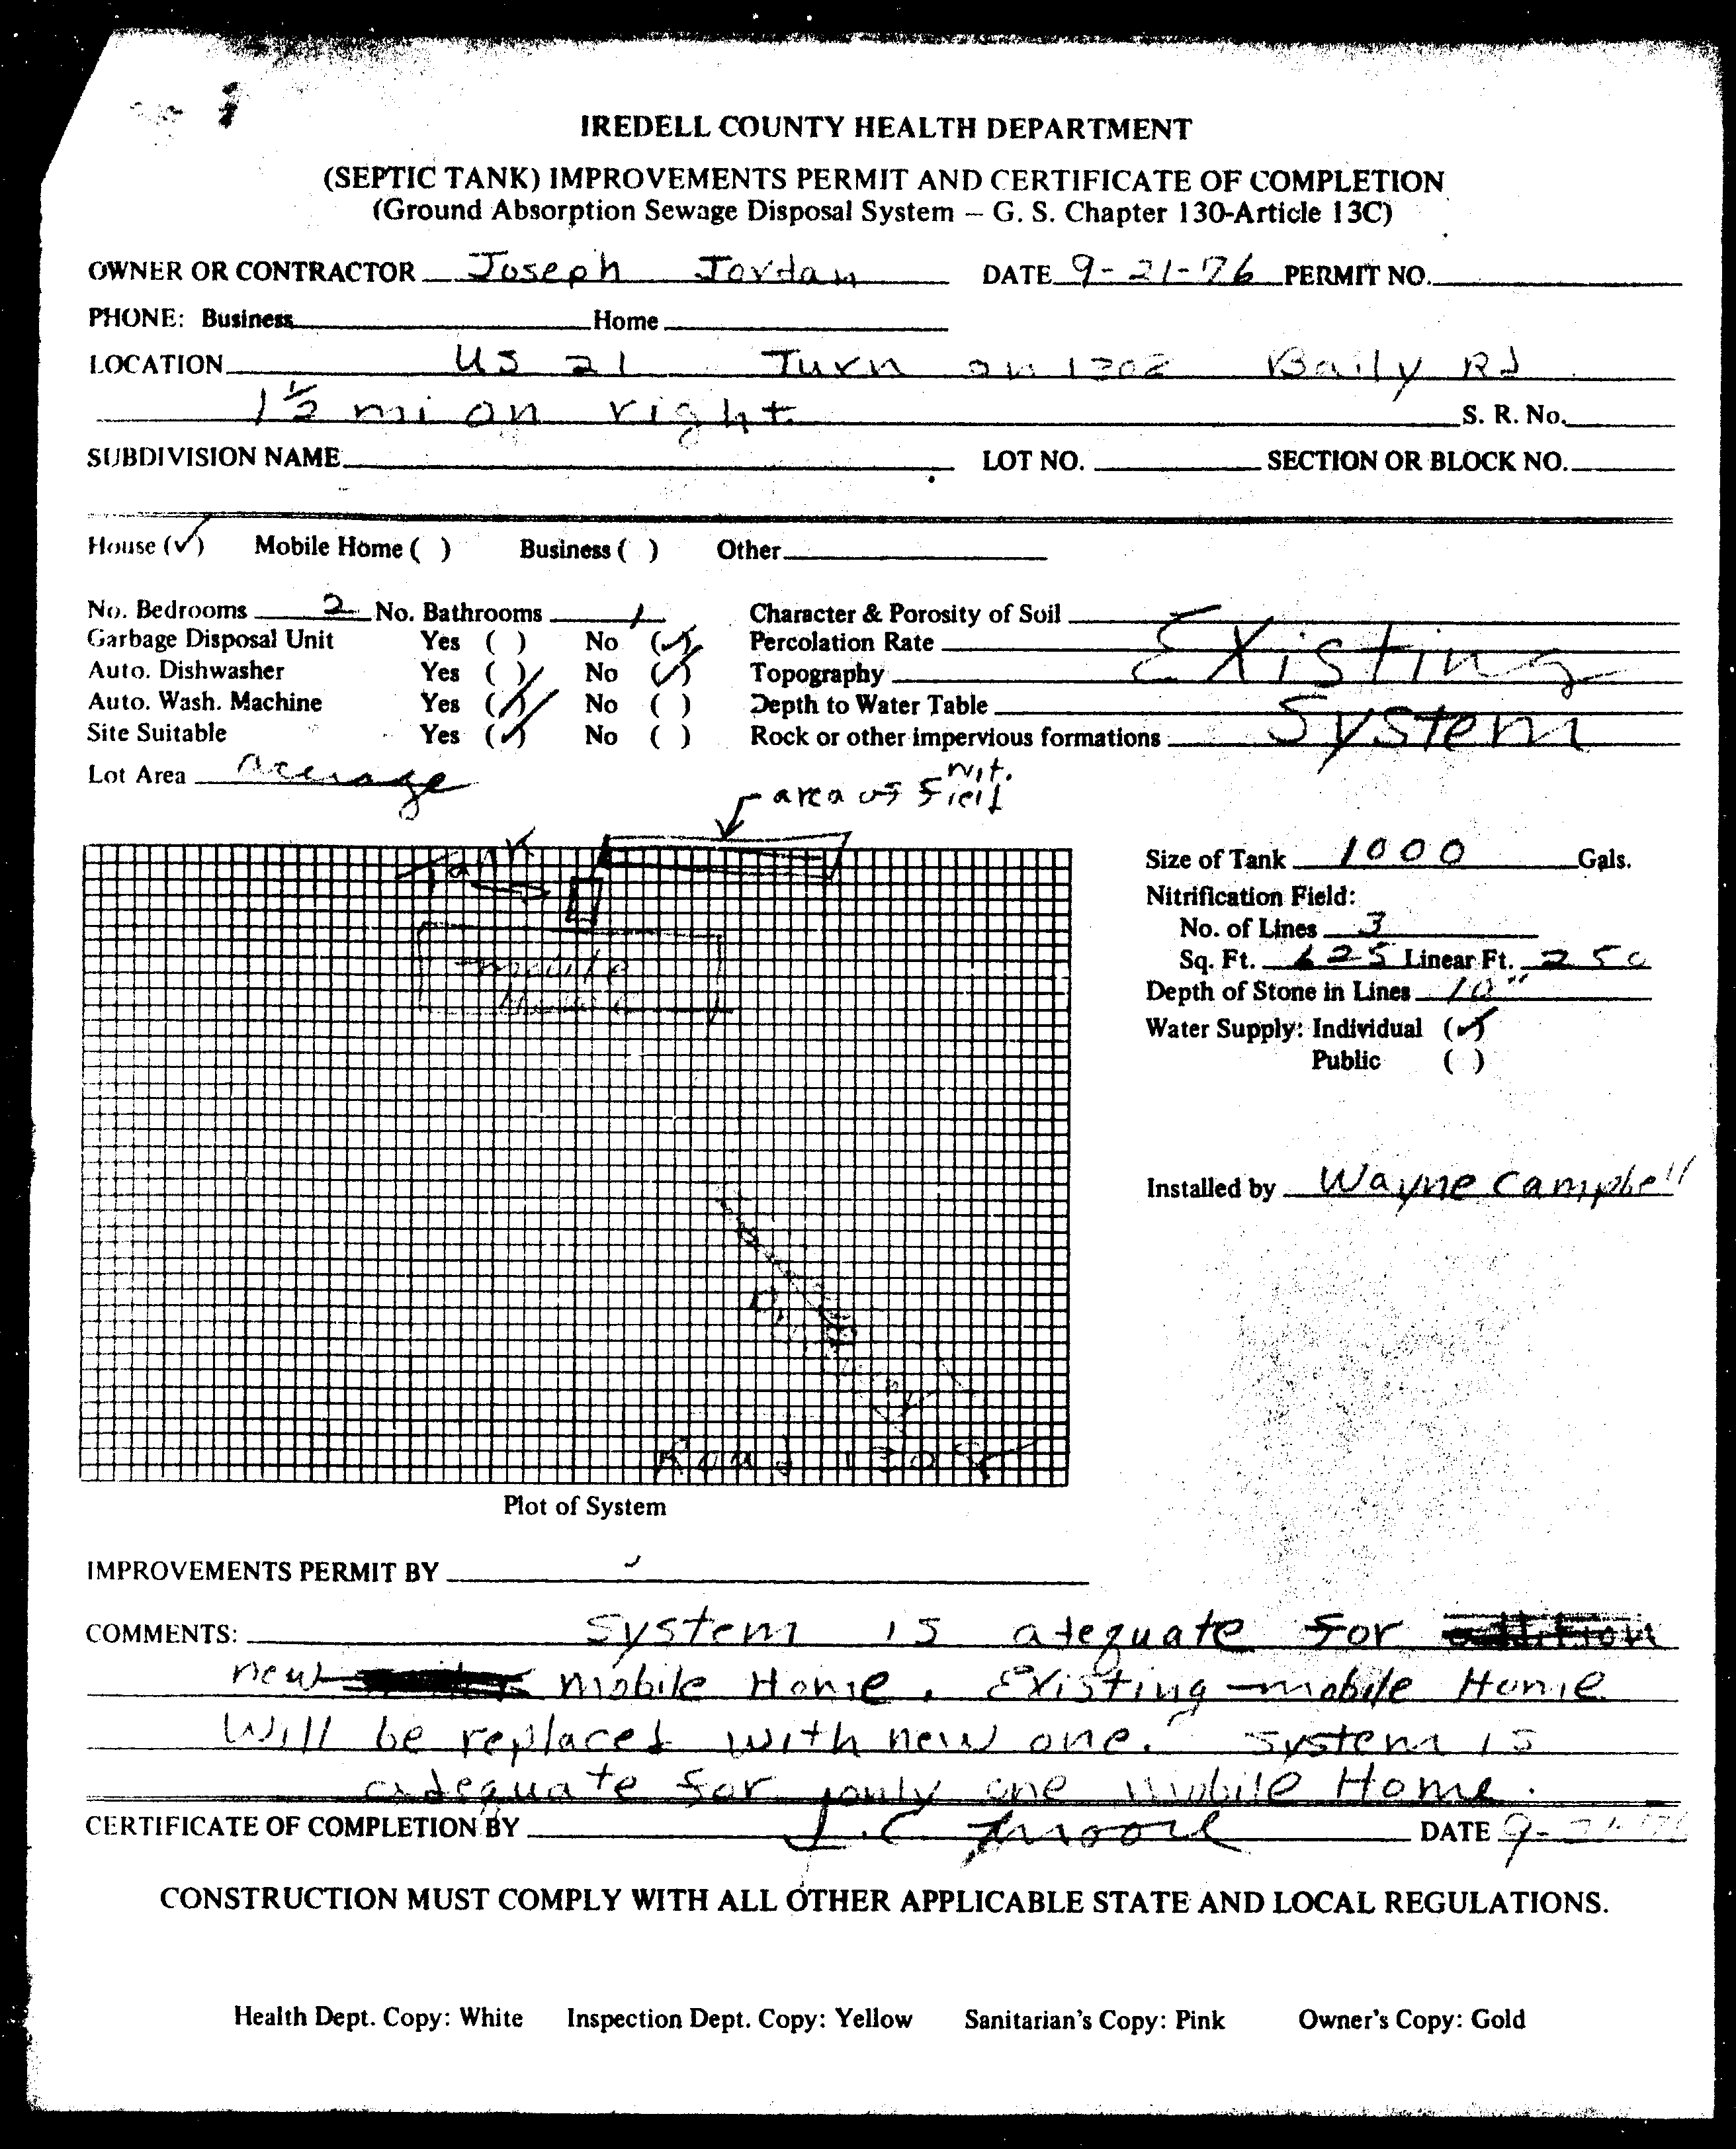 IREDELL COUNTY HEALTH DEPARTMENT
(SEPTIC TANK) IMPROVEMENTS PERMIT AND CERTIFICATE OF COMPLETION
(Ground Absorption Sewage Disposal System – G. S. Chapter 130-Article 13C)
OWNER OR CONTRACTOR Joseph Jordan DATE 9-21-76 PERMIT NO.
PHONE: Business Home
LOCATION US 21 Turn on 1302 Baily Rd
1½ mi on right S. R. No.
SUBDIVISION NAME LOT NO. SECTION OR BLOCK NO.
House (✓) Mobile Home ( ) Business ( ) Other
No. Bedrooms 2 No. Bathrooms 1 Character & Porosity of Soil
Garbage Disposal Unit Yes ( ) No (✓) Percolation Rate Existing
Auto. Dishwasher Yes ( ) No (✓) Topography
Auto. Wash. Machine Yes (✓) No ( ) Depth to Water Table System
Site Suitable Yes (✓) No ( ) Rock or other impervious formations
Lot Area Acerage
area of nit. field
Tank
mobile
Road 1302
Size of Tank 1000 Gals.
Nitrification Field:
No. of Lines 3
Sq. Ft. 625 Linear Ft. 250
Depth of Stone in Lines 10"
Water Supply: Individual (✓)
Public ( )
Installed by Wayne Campbell
Plot of System
IMPROVEMENTS PERMIT BY
COMMENTS: System is adequate for
new mobile Home. Existing mobile Home
Will be replaced with new one. System is
adequate for only one mobile Home.
CERTIFICATE OF COMPLETION BY J.C. Moore DATE 9-21-76
CONSTRUCTION MUST COMPLY WITH ALL OTHER APPLICABLE STATE AND LOCAL REGULATIONS.
Health Dept. Copy: White Inspection Dept. Copy: Yellow Sanitarian's Copy: Pink Owner's Copy: Gold